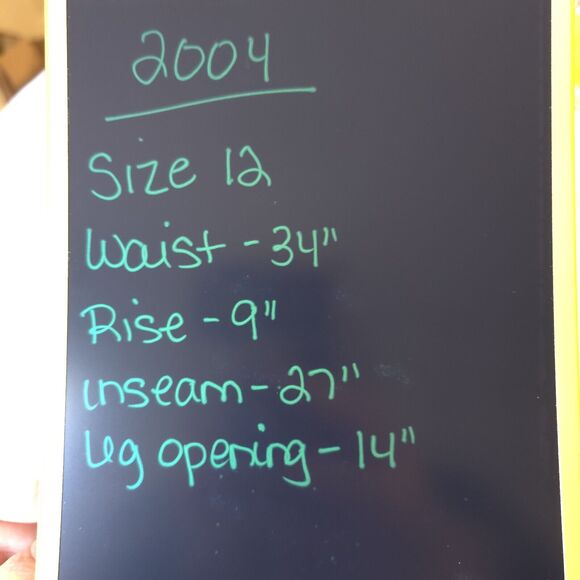 2004
Size 12
Waist - 34"
Rise - 9"
inseam - 27"
leg opening - 14"